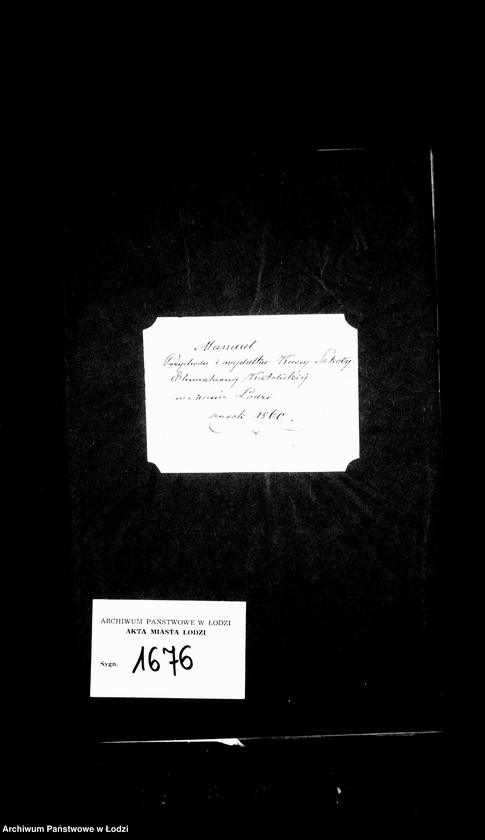 Manuał
Przychodu i wydatku Kassy Szkoły
Elementarnej Katolickiej
w Mieście Łodzi
na rok 1860.
ARCHIWUM PAŃSTWOWE W ŁODZI
AKTA MIASTA ŁODZI
Sygn. 1676
Archiwum Państwowe w Łodzi